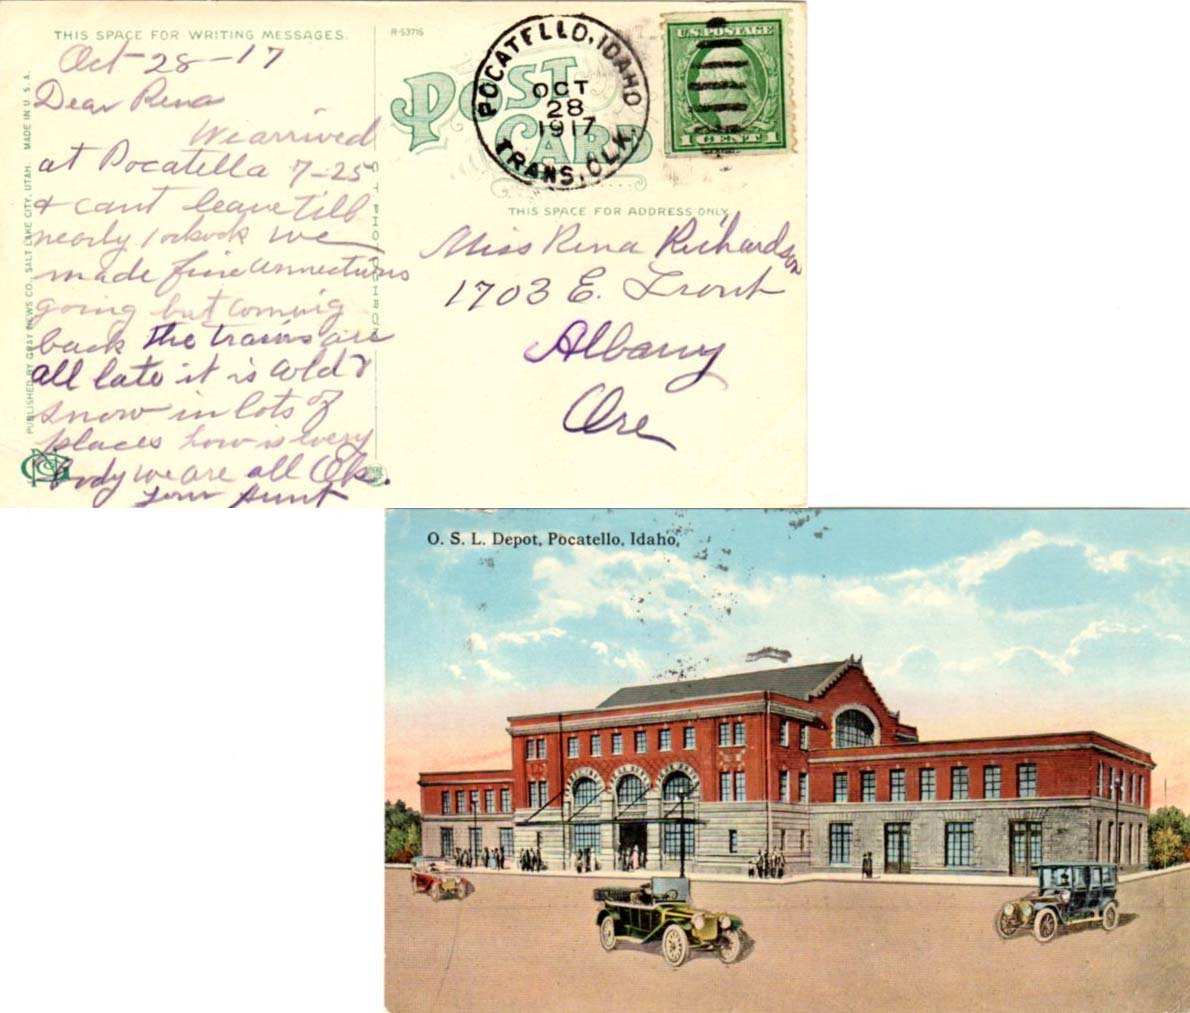 THIS SPACE FOR WRITING MESSAGES.
Oct-28-17
Dear Rena
We arrived
at Pocatella 7-25
& cant leave till
nearly 1 oclock we
made fine connections
going but coming
back the trains are
all late it is cold &
snow in lots of
places how is every
body we are all Ok.
your Aunt
PUBLISHED BY GRAY NEWS CO., SALT LAKE CITY, UTAH. MADE IN U.S.A.
R-53715
POST
CARD
POCATELLO, IDAHO
OCT
28
1917
TRANS. CLK.
U.S. POSTAGE
1 CENT 1
THIS SPACE FOR ADDRESS ONLY
Miss Rena Richardson
1703 E. Front
Albany
Ore
O. S. L. Depot, Pocatello, Idaho,